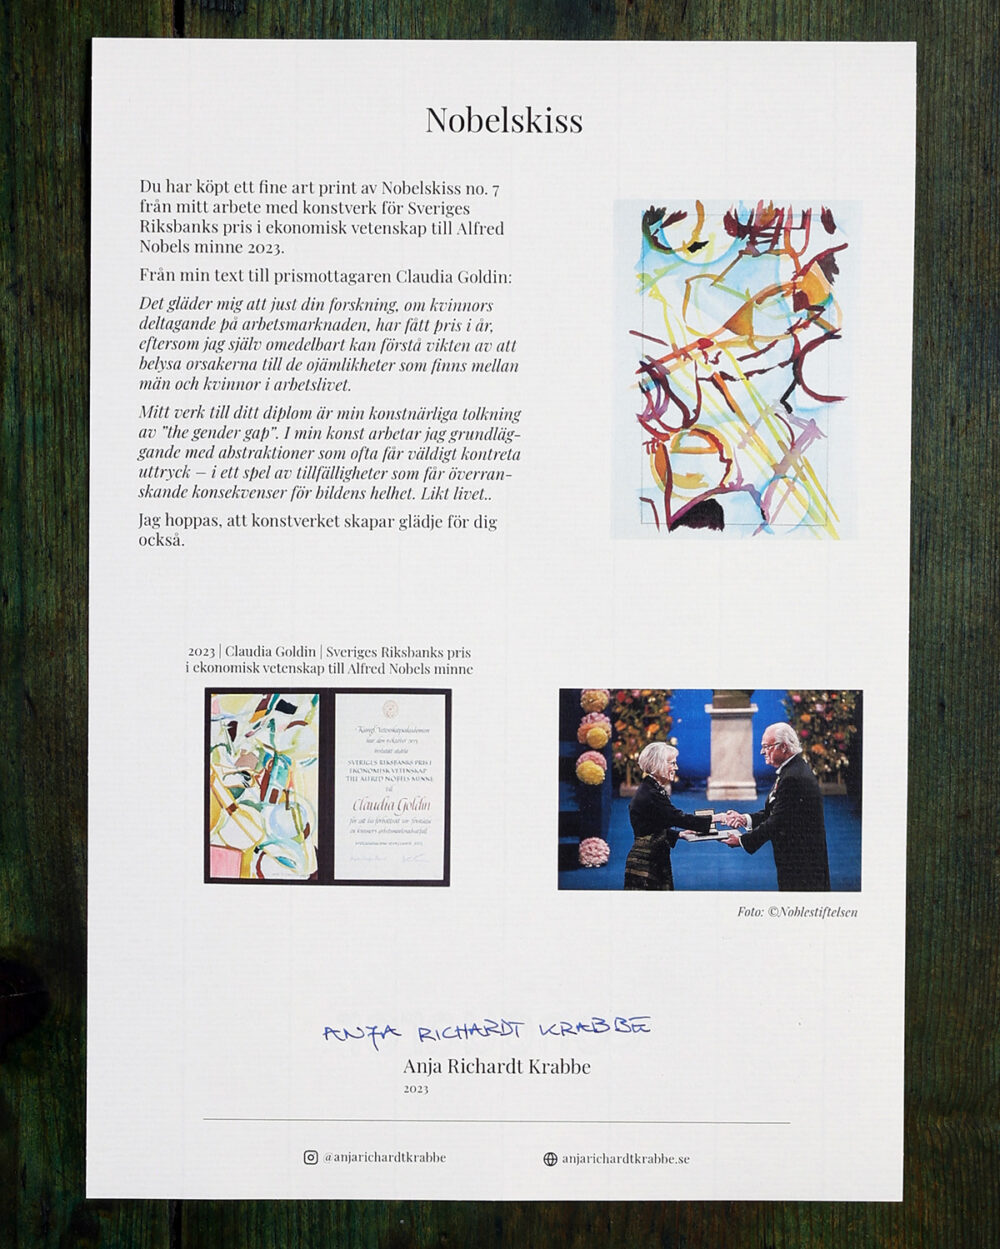 Nobelskiss
Du har köpt ett fine art print av Nobelskiss no. 7
från mitt arbete med konstverk för Sveriges
Riksbanks pris i ekonomisk vetenskap till Alfred
Nobels minne 2023.
Från min text till prismottagaren Claudia Goldin:
Det gläder mig att just din forskning, om kvinnors
deltagande på arbetsmarknaden, har fått pris i år,
eftersom jag själv omedelbart kan förstå vikten av att
belysa orsakerna till de ojämlikheter som finns mellan
män och kvinnor i arbetslivet.
Mitt verk till ditt diplom är min konstnärliga tolkning
av ”the gender gap”. I min konst arbetar jag grundläg-
gande med abstraktioner som ofta får väldigt kontreta
uttryck – i ett spel av tillfälligheter som får överran-
skande konsekvenser för bildens helhet. Likt livet..
Jag hoppas, att konstverket skapar glädje för dig
också.
2023 | Claudia Goldin | Sveriges Riksbanks pris
i ekonomisk vetenskap till Alfred Nobels minne
Kungl. Vetenskapsakademien
har den oktober 2023
beslutat utdela
SVERIGES RIKSBANKS PRIS I
EKONOMISK VETENSKAP
TILL ALFRED NOBELS MINNE
till
Claudia Goldin
för att ha förbättrat vår förståelse
av kvinnors arbetsmarknadsutfall
Foto: ©Noblestiftelsen
ANJA RICHARDT KRABBE
Anja Richardt Krabbe
2023
@anjarichardtkrabbe
anjarichardtkrabbe.se